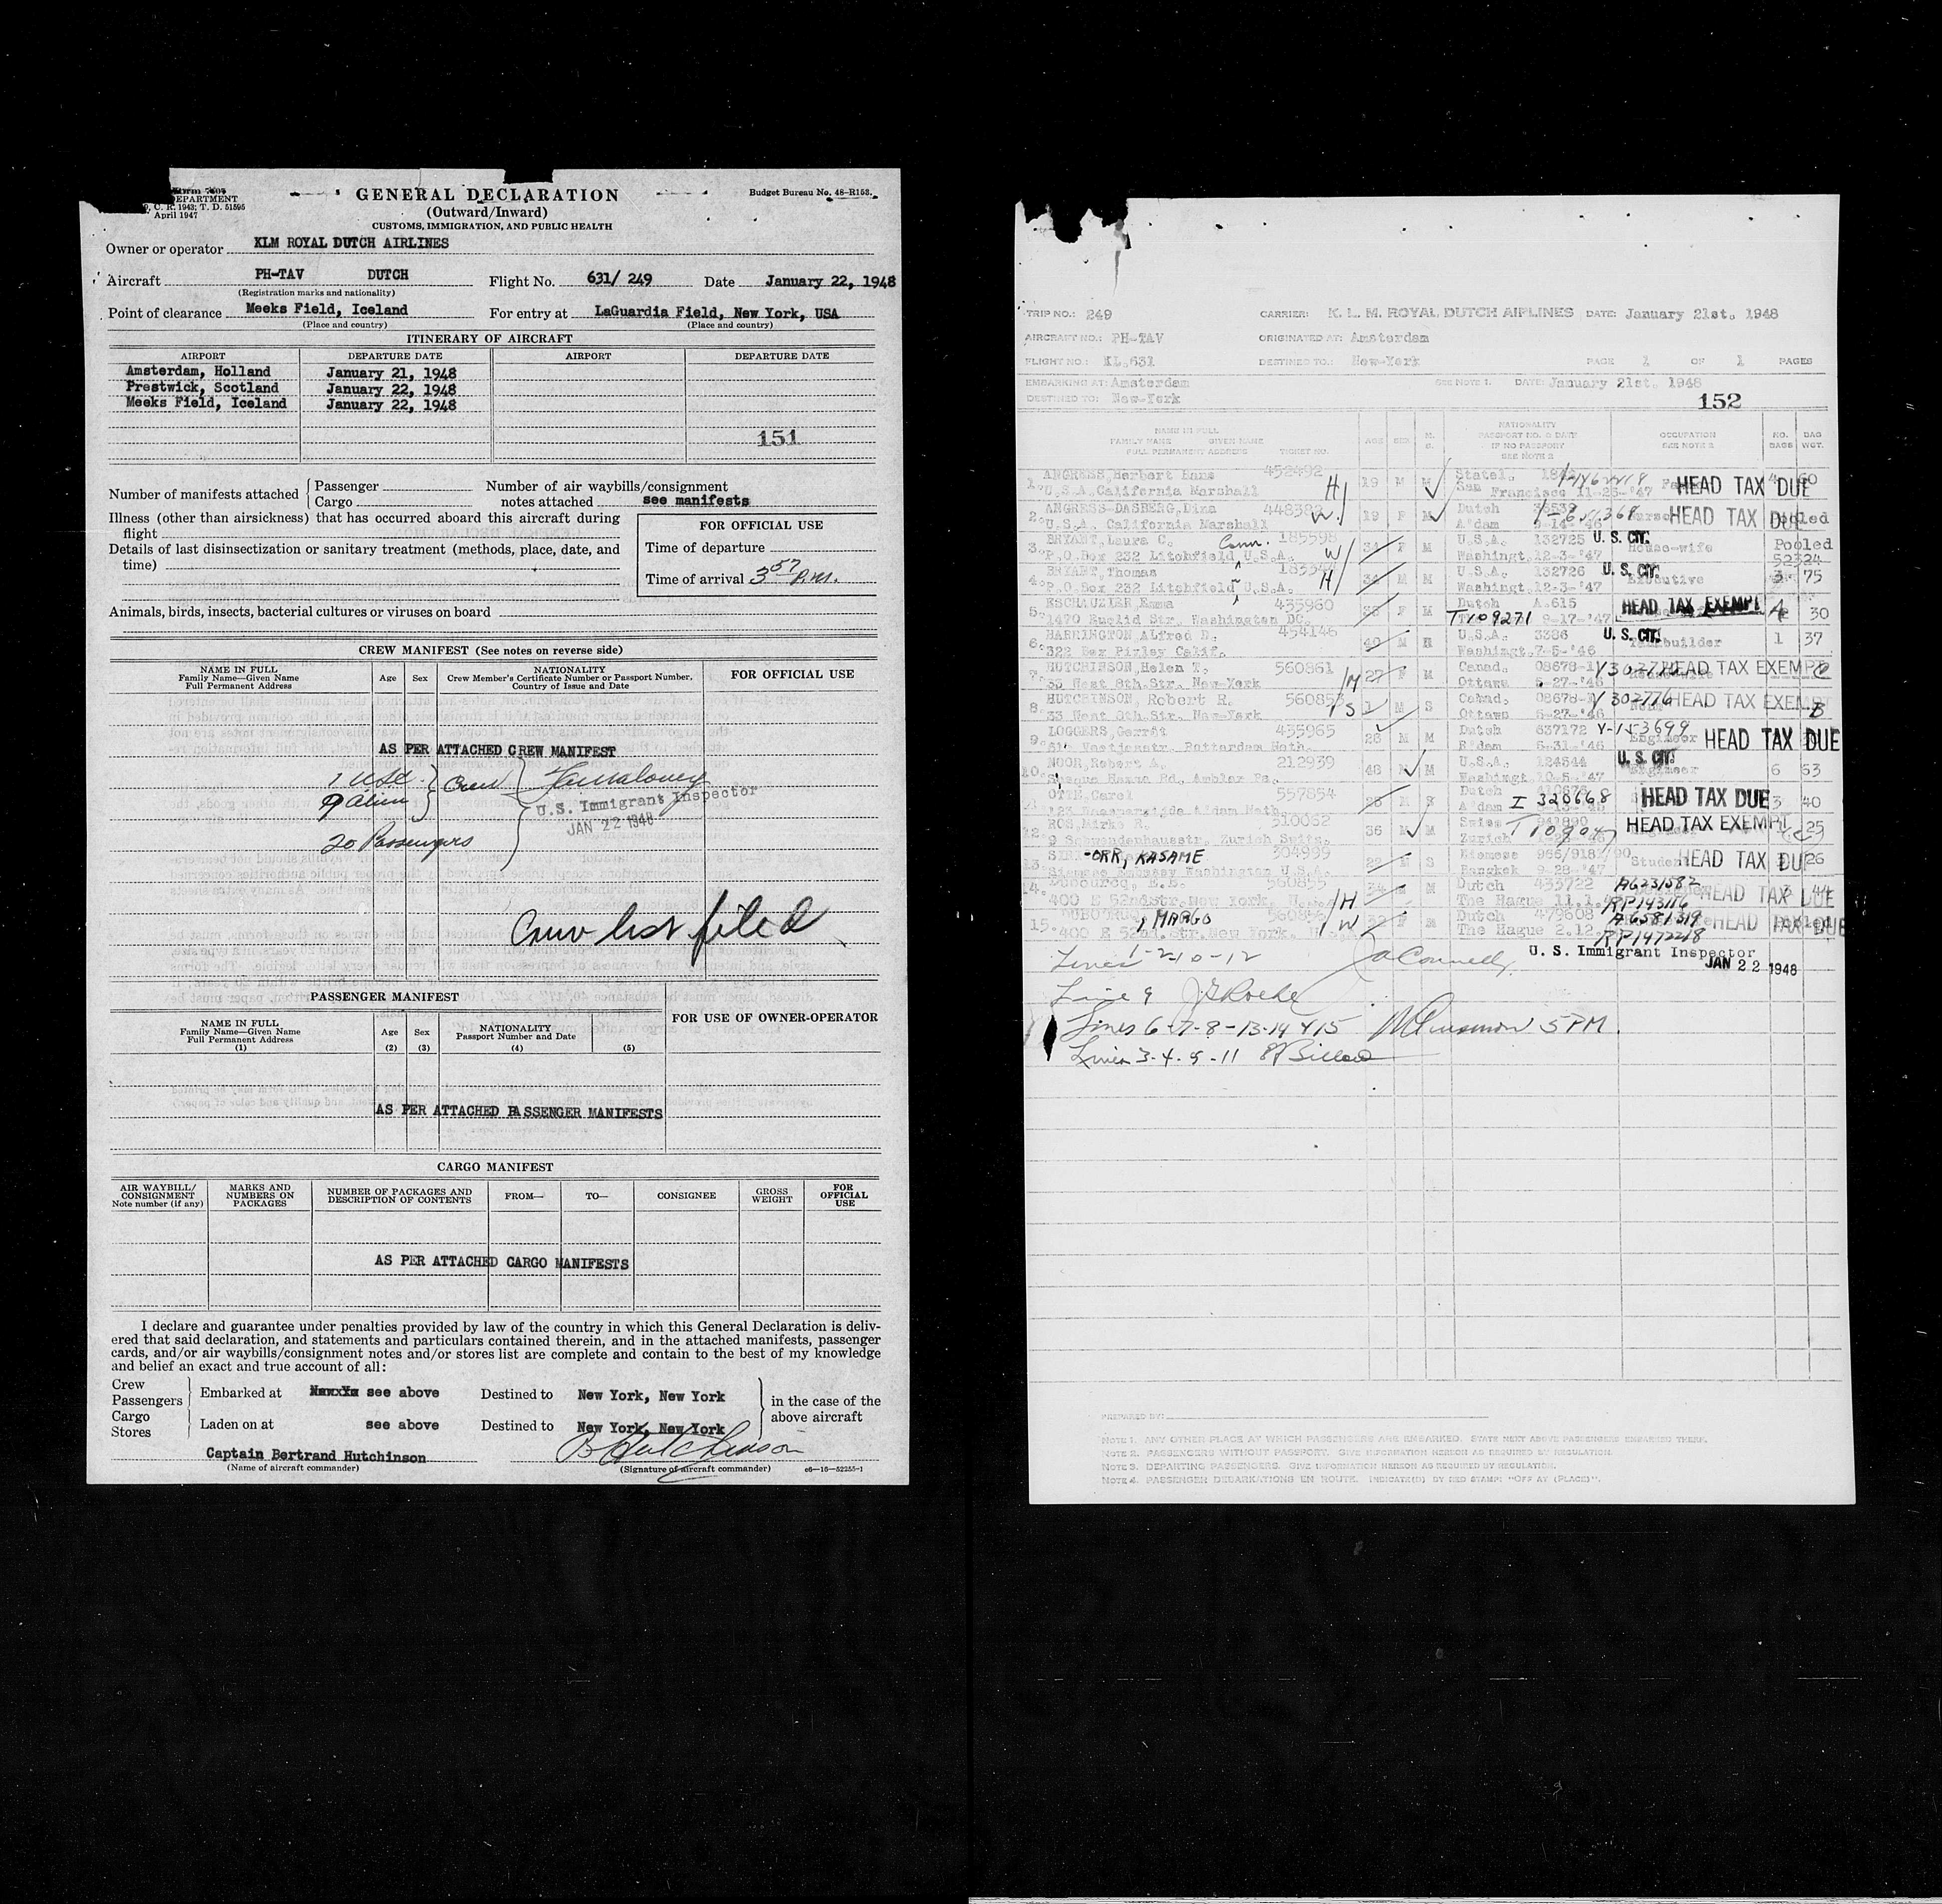 Form 7507
DEPARTMENT
D. C. R. 1943; T. D. 51595
April 1947
GENERAL DECLARATION
(Outward/Inward)
CUSTOMS, IMMIGRATION, AND PUBLIC HEALTH
Budget Bureau No. 48-R153.
Owner or operator KLM ROYAL DUTCH AIRLINES
Aircraft PH-TAV DUTCH Flight No. 631/ 249 Date January 22, 1948
(Registration marks and nationality)
Point of clearance Meeks Field, Iceland For entry at LaGuardia Field, New York, USA
(Place and country) (Place and country)
ITINERARY OF AIRCRAFT
AIRPORT DEPARTURE DATE AIRPORT DEPARTURE DATE
Amsterdam, Holland January 21, 1948
Prestwick, Scotland January 22, 1948
Meeks Field, Iceland January 22, 1948
151
Number of manifests attached Passenger Cargo
Number of air waybills/consignment notes attached see manifests
Illness (other than airsickness) that has occurred aboard this aircraft during
flight
Details of last disinsectization or sanitary treatment (methods, place, date, and
time)
FOR OFFICIAL USE
Time of departure
Time of arrival 3 57 P.M.
Animals, birds, insects, bacterial cultures or viruses on board
CREW MANIFEST (See notes on reverse side)
NAME IN FULL
Family Name—Given Name
Full Permanent Address
Age Sex
NATIONALITY
Crew Member's Certificate Number or Passport Number,
Country of Issue and Date
FOR OFFICIAL USE
AS PER ATTACHED CREW MANIFEST
1 USC
9 Alien
Crew
U.S. Immigrant Inspector
JAN 22 1948
20 Passengers
Crew list filed
PASSENGER MANIFEST
NAME IN FULL
Family Name—Given Name
Full Permanent Address
(1)
Age
(2)
Sex
(3)
NATIONALITY
Passport Number and Date
(4) (5)
FOR USE OF OWNER-OPERATOR
AS PER ATTACHED PASSENGER MANIFESTS
CARGO MANIFEST
AIR WAYBILL/
CONSIGNMENT
Note number (if any)
MARKS AND
NUMBERS ON
PACKAGES
NUMBER OF PACKAGES AND
DESCRIPTION OF CONTENTS
FROM— TO— CONSIGNEE
GROSS
WEIGHT
FOR
OFFICIAL
USE
AS PER ATTACHED CARGO MANIFESTS
I declare and guarantee under penalties provided by law of the country in which this General Declaration is deliv-
ered that said declaration, and statements and particulars contained therein, and in the attached manifests, passenger
cards, and/or air waybills/consignment notes and/or stores list are complete and contain to the best of my knowledge
and belief an exact and true account of all:
Crew
Passengers
Cargo
Stores
Embarked at see above Destined to New York, New York
Laden on at see above Destined to New York, New York
in the case of the
above aircraft
Captain Bertrand Hutchinson
B Hutchinson
(Name of aircraft commander) (Signature of aircraft commander) c6-16-52255-1
TRIP NO.: 249 CARRIER: K. L. M. ROYAL DUTCH AIRLINES DATE: January 21st. 1948
AIRCRAFT NO.: PH-TAV ORIGINATED AT: Amsterdam
FLIGHT NO.: KL.631 DESTINED TO: New-York PAGE 1 OF 1 PAGES
EMBARKING AT: Amsterdam SEE NOTE 1. DATE: January 21st. 1948
DESTINED TO: New-York
152
NAME IN FULL
FAMILY NAME GIVEN NAME
FULL PERMANENT ADDRESS TICKET NO.
AGE SEX M. S.
NATIONALITY
PASSPORT NO. & DATE
IF NO PASSPORT
SEE NOTE 2
OCCUPATION
SEE NOTE 2
NO. BAGS
BAG WGT.
1. ANGRESS, Herbert Hans 452492 H 19 M M Statel. HEAD TAX DUE
U.S.A. California Marshall San Francisco 11-25-'47
2. ANGRESS-DASBERG, Dina W 19 F M Dutch HEAD TAX DUE
U.S.A. California Marshall A'dam
3. BRYANT, Laura C. Conn. 185598 W F M U.S.A. 132725 U. S. CIT. House-wife Pooled
P.O.Box 232 Litchfield U.S.A. Washingt. 12-3-'47
4. BRYANT, Thomas H M M U.S.A. 132726 U. S. CIT. Executive 75
P.O.Box 232 Litchfield U.S.A. Washingt. 12-3-'47
5. ESCHAUZIER Emma 435980 F M Dutch A.615 HEAD TAX EXEMPT 30
1470 Euclid Str. Washington DC. T109271 9-17-'47
6. HARRINGTON Alfred D. 454146 40 M U.S.A. 3386 U. S. CIT. 1 37
322 Box Pixley Calif. Washingt. 7-5-'46
7. HUTCHINSON, Helen T. 560861 M 27 F M Canad. 08678-1 HEAD TAX EXEMPT
33 West 8th.Str. New-York Ottawa 5-27-'46
8. HUTCHINSON, Robert R. S 1 M S Canad. 302776 HEAD TAX EXEMPT
33 West 8th.Str. New-York Ottawa 5-27-'46
9. LOGGERS, Gerrit 435965 M M Dutch 637172 V-153699 Engineer HEAD TAX DUE
Rotterdam Neth. R'dam 5-31-'46
10. NOOR, Robert A. 212939 48 M U.S.A. 124544 U. S. CIT. Engineer 6 53
Ambler Pa. Washingt. 10-5-'47
OTTE, Carel 557854 M S Dutch I 320668 HEAD TAX DUE 3 40
A'dam Neth. A'dam
12. 310062 36 M M Swiss HEAD TAX EXEMPT 25
Zurich Switz. Zurich
13. -ORR, KASAME 304999 M S Siamese 966/9187/90 Student HEAD TAX DUE 26
Siamese Embassy Washington U.S.A. Bangkok 9-28-'47
14. 560855 H 34 M Dutch 433722 A6231582 HEAD TAX DUE 44
400 E 52ndstr. New York. The Hague 11.1. RP143116
15. , MARGO 560856 W F M Dutch 479608 A6581319 HEAD TAX DUE
400 E 52nd. Str. New York. The Hague 2.12. RP1472218
Lines 1-2-10-12
U. S. Immigrant Inspector
JAN 22 1948
Line 9
Lines 6-7-8-13-14 & 15 5 PM.
Lines 3-4-5-11
PREPARED BY:
NOTE 1. ANY OTHER PLACE AT WHICH PASSENGERS ARE EMBARKED. STATE NEXT ABOVE PASSENGERS EMBARKED THERE.
NOTE 2. PASSENGERS WITHOUT PASSPORT. GIVE INFORMATION HEREON AS REQUIRED BY REGULATION.
NOTE 3. DEPARTING PASSENGERS. GIVE INFORMATION HEREON AS REQUIRED BY REGULATION.
NOTE 4. PASSENGER DEBARKATIONS EN ROUTE. INDICATE(D) BY RED STAMP: "OFF AT (PLACE)".